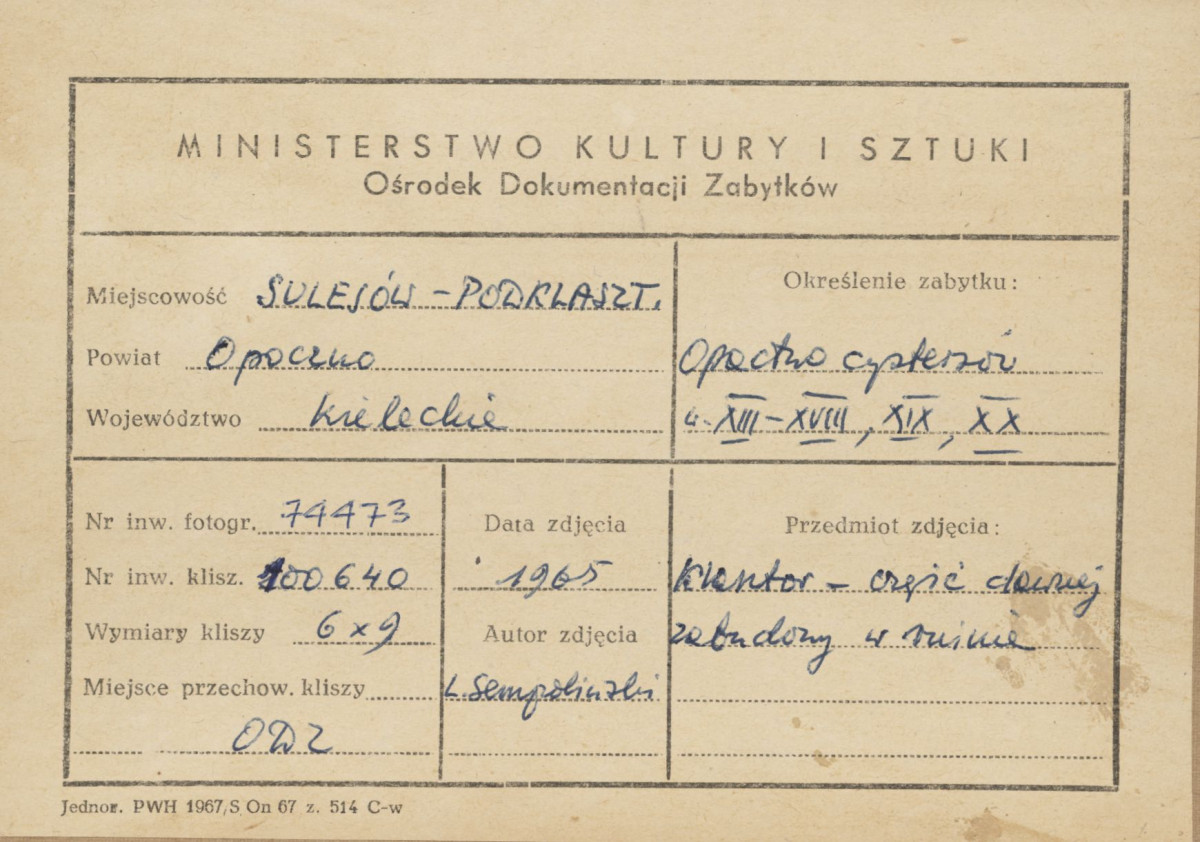 MINISTERSTWO KULTURY I SZTUKI
Ośrodek Dokumentacji Zabytków
Miejscowość SULEJÓW – PODKLASZT.
Powiat Opoczno
Województwo kieleckie
Określenie zabytku:
Opactwo cystersów
w. XIII – XVIII, XIX, XX
Nr inw. fotogr. 74473
Nr inw. klisz. 100640
Wymiary kliszy 6 x 9
Miejsce przechow. kliszy
ODZ
Data zdjęcia
1965
Autor zdjęcia
L. Sempoliński
Przedmiot zdjęcia:
Klasztor – część dawnej
zabudowy w ruinie
Jednor. PWH 1967, S On 67 z. 514 C-w